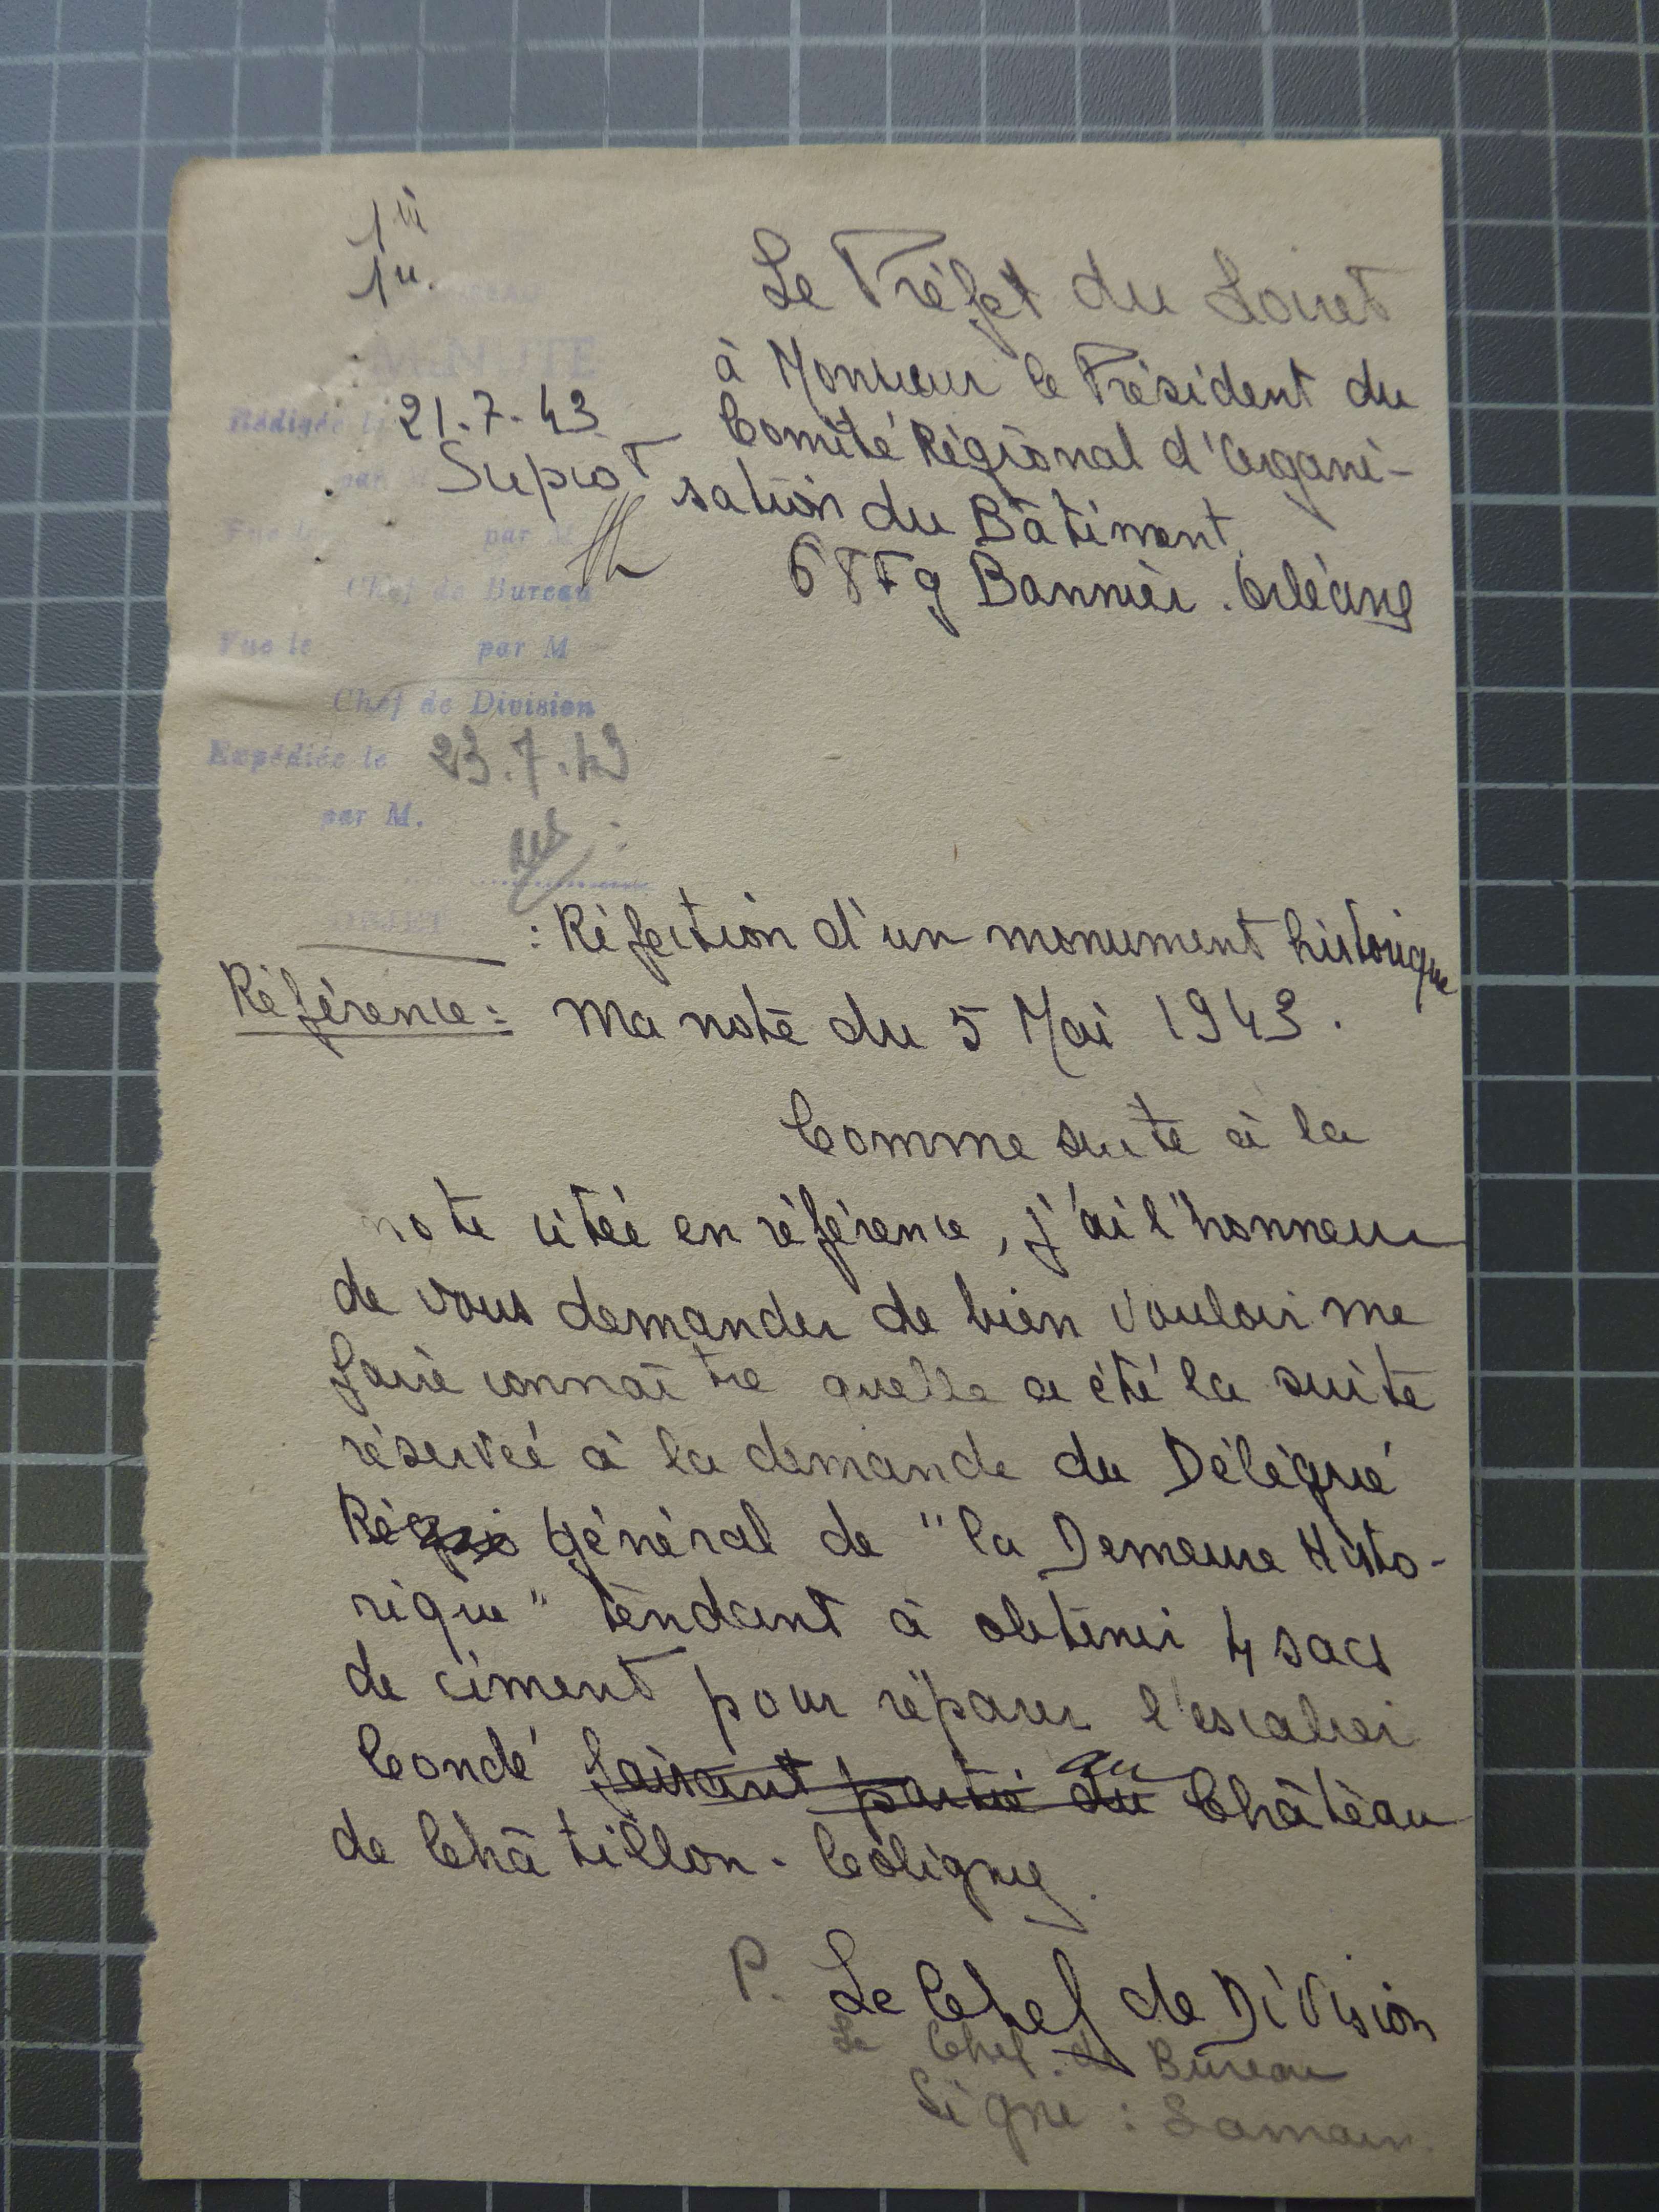 Le Préfet du Loiret
à Monsieur le Président du
Comité Régional d'Organi-
sation du Bâtiment.
68 Fg Bannier. Orléans
BUREAU
MINUTE
Rédigée le 21.7.43
par M Supiot
Vue le par M
Chef de Bureau
Vue le par M
Chef de Division
Expédiée le 23.7.43
par M.
OBJET : Réfection d'un monument historique
Référence : Ma note du 5 Mai 1943.
Comme suite à la
note citée en référence, j'ai l'honneur
de vous demander de bien vouloir me
faire connaître quelle a été la suite
réservée à la demande du Délégué
Régio général de "la Demeure Histo-
rique" tendant à obtenir 4 sacs
de ciment pour réparer l'escalier
Condé faisant partie du au Château
de Châtillon-Coligny.
P. Le Chef de Division
Le Chef de Bureau
Signé :